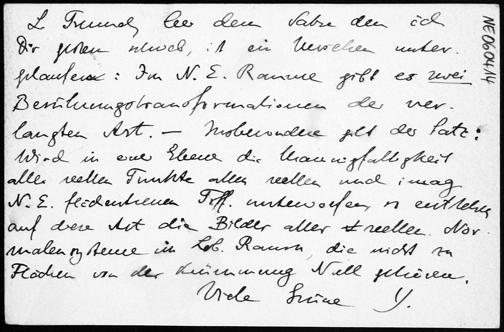 L Freund, bei dem Satze den ich
Dir gestern schrieb, ist ein Versehen unter-
gelaufen: Im N. E. Raume gibt es zwei
Berührungstransformationen der ver-
langten Art. — Insbesondere gilt der Satz:
Wird in einer Ebene die Mannigfaltigkeit
aller reellen Punkte allen reellen und imag.
N. E. unterworfen, so entstehen
auf diese Art die Bilder aller reellen Nor-
malensysteme in Lob. Raum, die nicht zu
Flächen von der Krümmung Null gehören.
Viele Grüsse Y.
NE060414